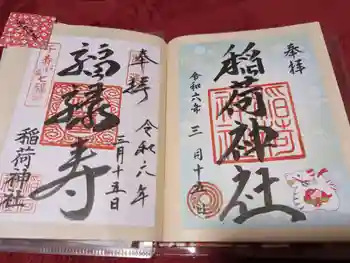 奉拝
稲荷神社
令和六年三月十五日
奉拝
令和六年
三月十五日
福禄寿
稲荷神社